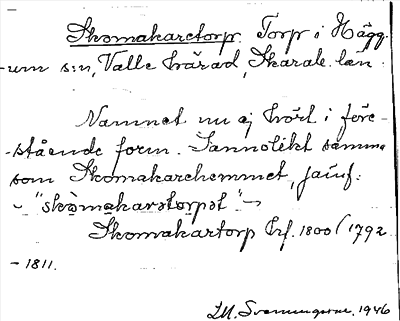 Skomakaretorp. Torp i Hägg-
um s:n, Valle härad, Skarab. län.
Namnet nu ej hört i före-
stående form. Sannolikt samma
som Skomakarehemmet, jämf.
"skòmakarstorpət"
Skomakartorp Hf. 1800 / 1792
- 1811.
1946